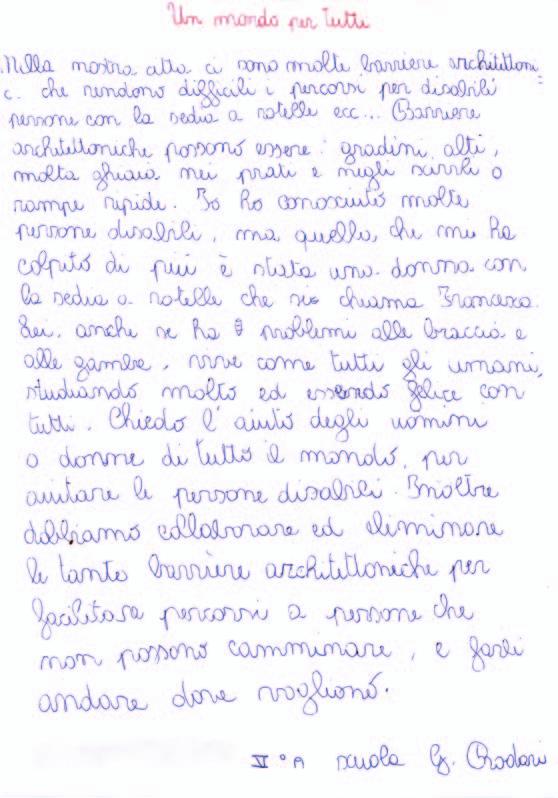 Un mondo per tutti
Nella nostra città ci sono molte barriere architettoni=
c. che rendono difficili i percorsi per disabili
persone con la sedia a rotelle ecc... Barriere
architettoniche possono essere: gradini, alti,
molta ghiaia nei prati e negli scivoli o
rampe ripide. Io ho conosciuto molte
persone disabili, ma quella, che mi ha
colpito di più è stata una donna con
la sedia a rotelle che si chiama Francesca.
Lei, anche se ha problemi alle braccia e
alle gambe, vive come tutti gli umani,
studiando molto ed essendo felice con
tutti. Chiedo l'aiuto degli uomini
o donne di tutto il mondo, per
aiutare le persone disabili. Inoltre
dobbiamo collaborare ed eliminare
le tante barriere architettoniche per
facilitare percorsi a persone che
non possono camminare, e farli
andare dove vogliono.
V°A scuola G. Rodari